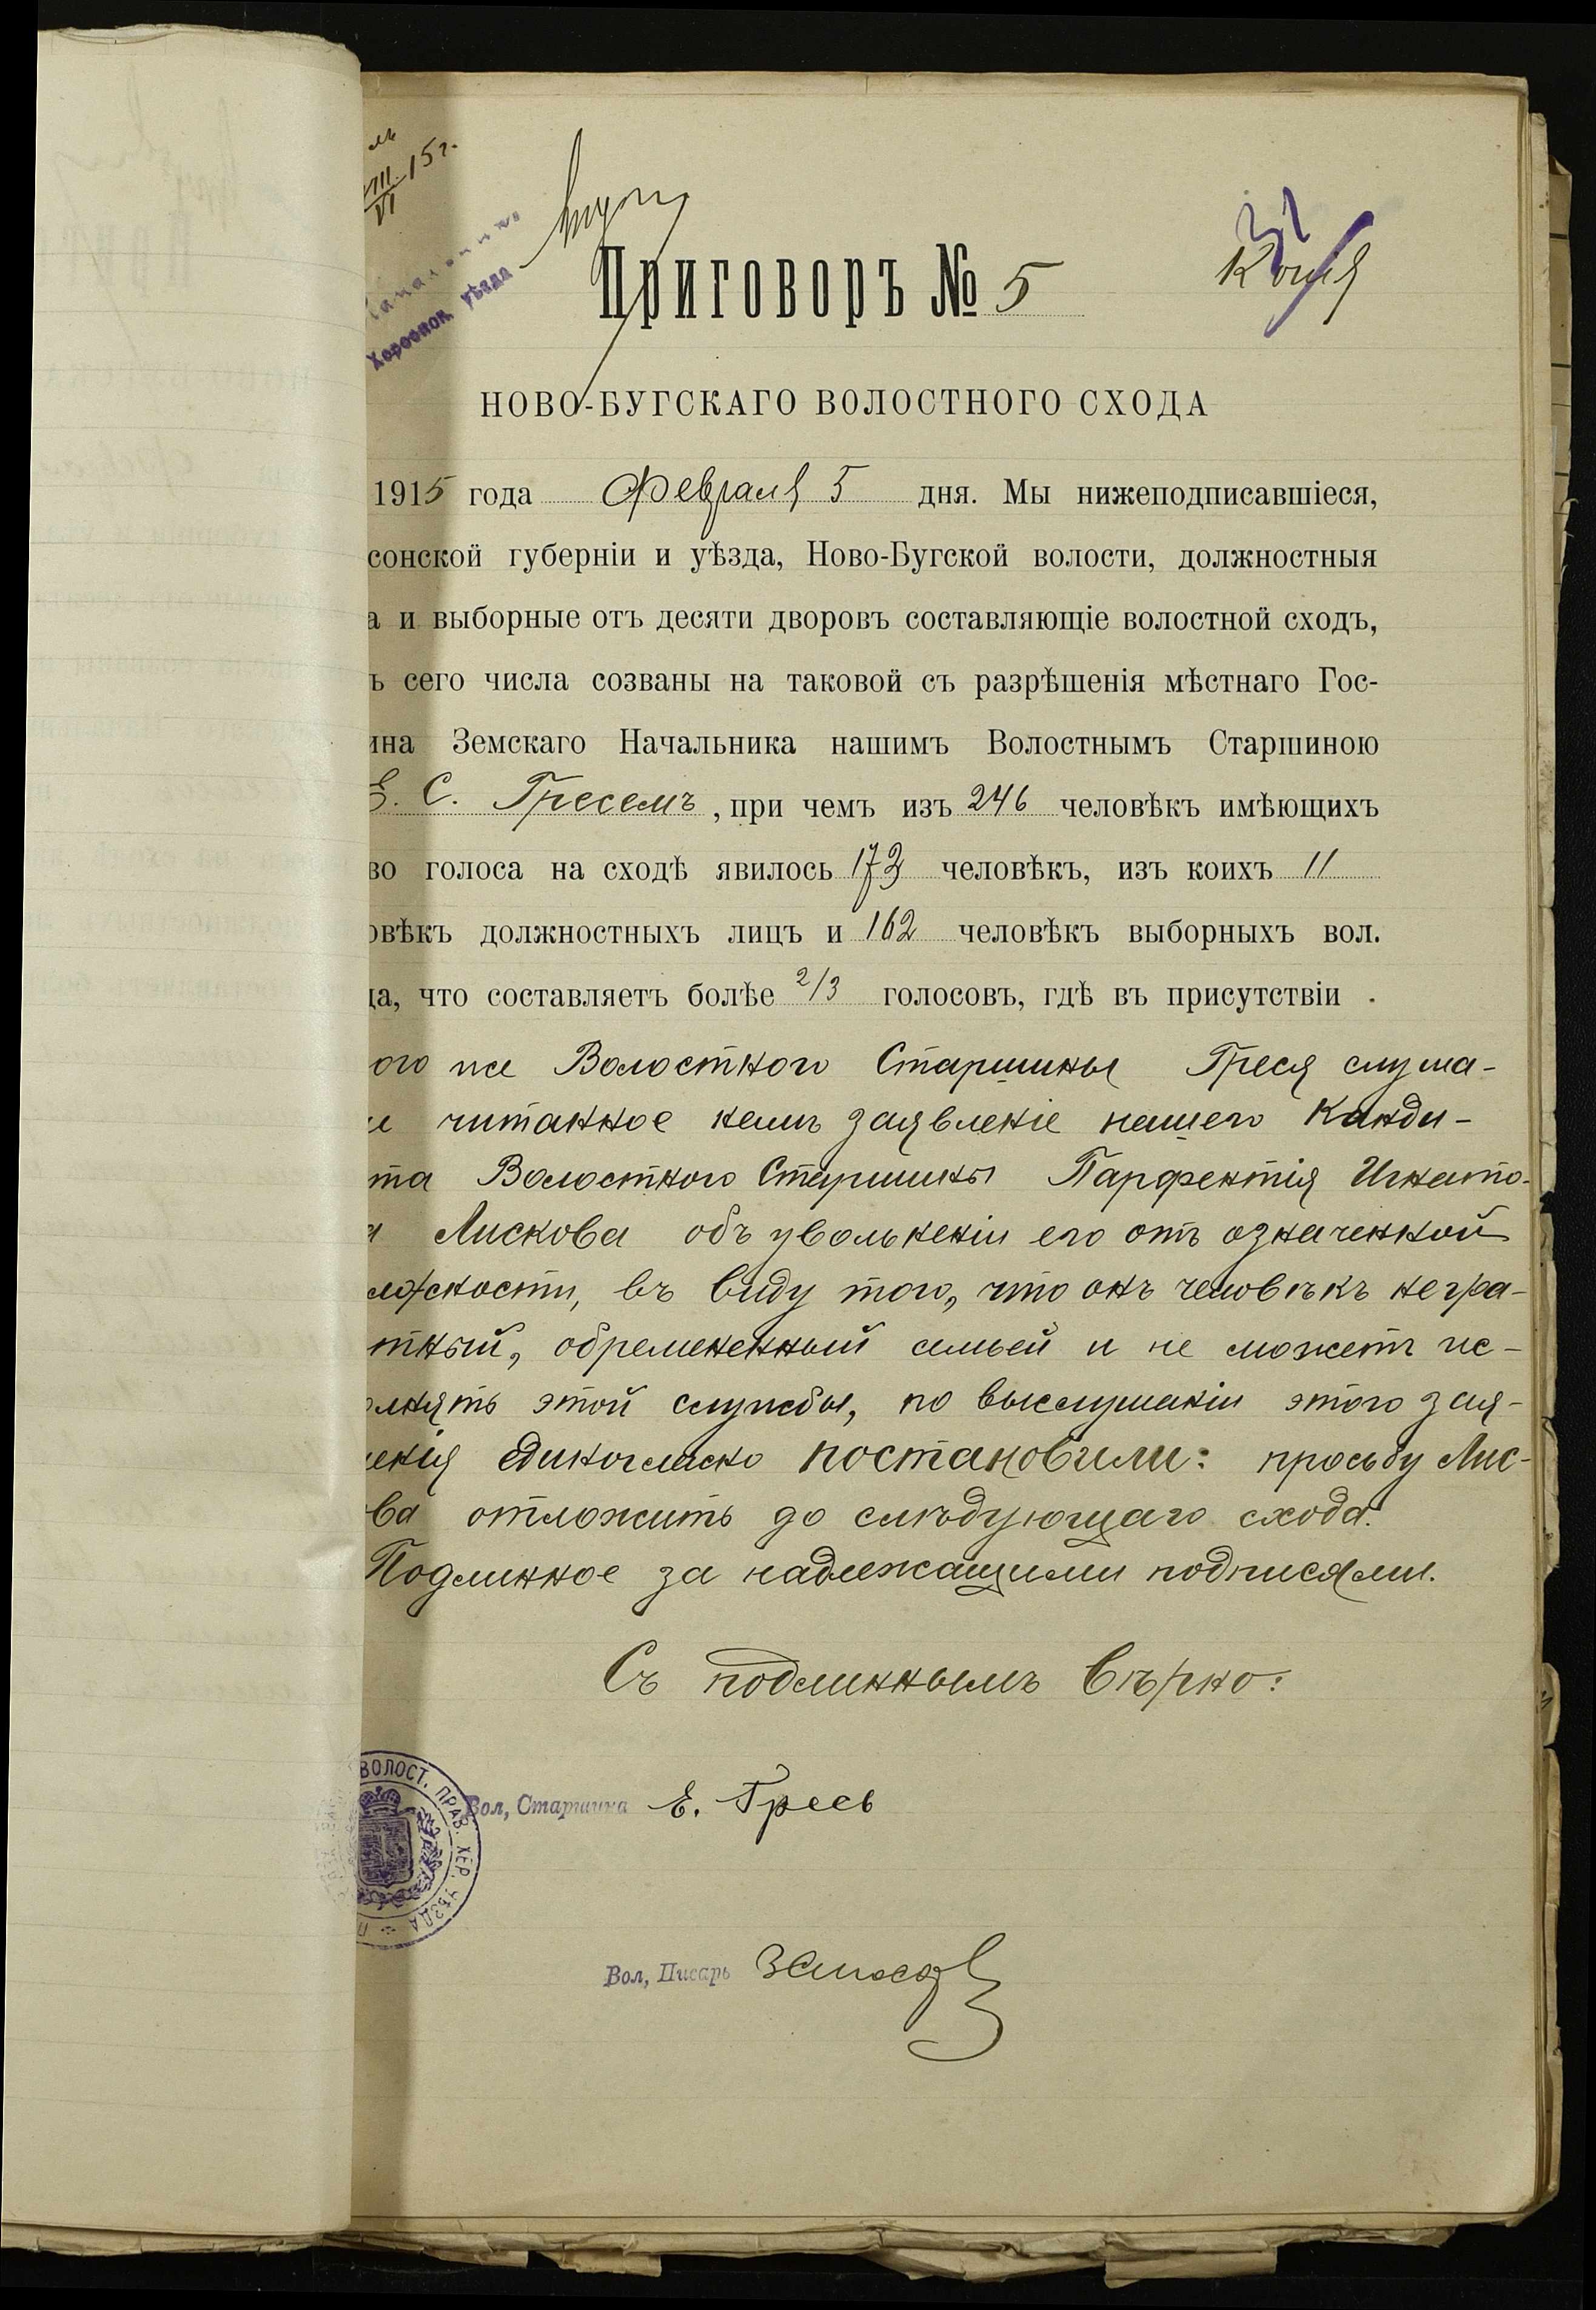 VIII/VI 15 г.
Херсонск уѣзда
Приговоръ № 5
Копія
31
НОВО-БУГСКАГО ВОЛОСТНОГО СХОДА
1915 года Февраля 5 дня. Мы нижеподписавшіеся,
сонской губерніи и уѣзда, Ново-Бугской волости, должностныя
а и выборные отъ десяти дворовъ составляющіе волостной сходъ,
ъ сего числа созваны на таковой съ разрѣшенія мѣстнаго Гос-
ина Земскаго Начальника нашимъ Волостнымъ Старшиною
Е. С. Гресемъ, при чемъ изъ 246 человѣкъ имѣющихъ
во голоса на сходѣ явилось 173 человѣкъ, изъ коихъ 11
овѣкъ должностныхъ лицъ и 162 человѣкъ выборныхъ вол.
да, что составляетъ болѣе 2/3 голосовъ, гдѣ въ присутствіи
ого же Волостного Старшины Греся слуша-
и читанное намъ заявленіе нашего Канди-
та Волостного Старшины Парфентія Игнато-
а Лискова объ увольненіи его отъ означенной
лжности, въ виду того, что онъ человѣкъ негра-
тный, обремененный семьей и не можетъ ис-
олнять этой службы, по выслушаніи этого зая-
ленія единогласно постановили: просьбу Лис-
ва отложить до слѣдующаго схода.
Подлинное за надлежащими подписями.
Съ подлиннымъ вѣрно:
ВОЛОСТ. ПРАВ. ХЕР. УѢЗДА
Вол, Старшина Е. Гресь
Вол, Писарь